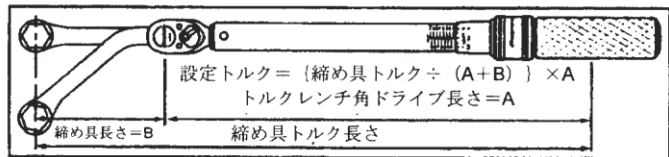 設定トルク＝｛締め具トルク÷（A＋B）｝×A
トルクレンチ角ドライブ長さ＝A
締め具長さ＝B
締め具トルク長さ